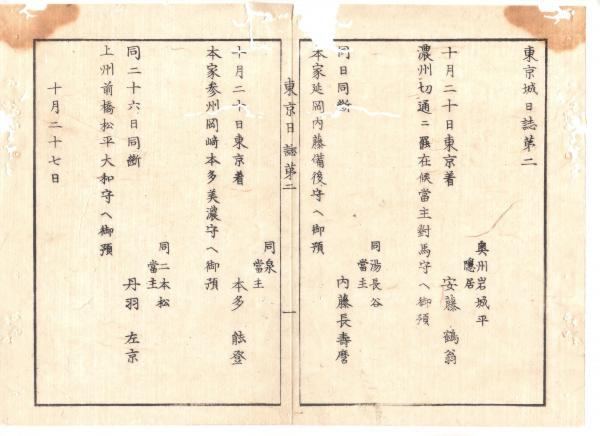 東京城日誌第二
奥州岩城平
隠居
安藤鶴翁
十月二十日東京着
濃州切通ニ罷在候當主對馬守ヘ御預
同湯長谷
當主
内藤長壽麿
同日同断
本家延岡内藤備後守ヘ御預
東京日誌第二
一
同泉
當主
本多能登
十月二十日東京着
本家参州岡崎本多美濃守ヘ御預
同二本松
當主
丹羽左京
同二十六日同断
上州前橋松平大和守ヘ御預
十月二十七日